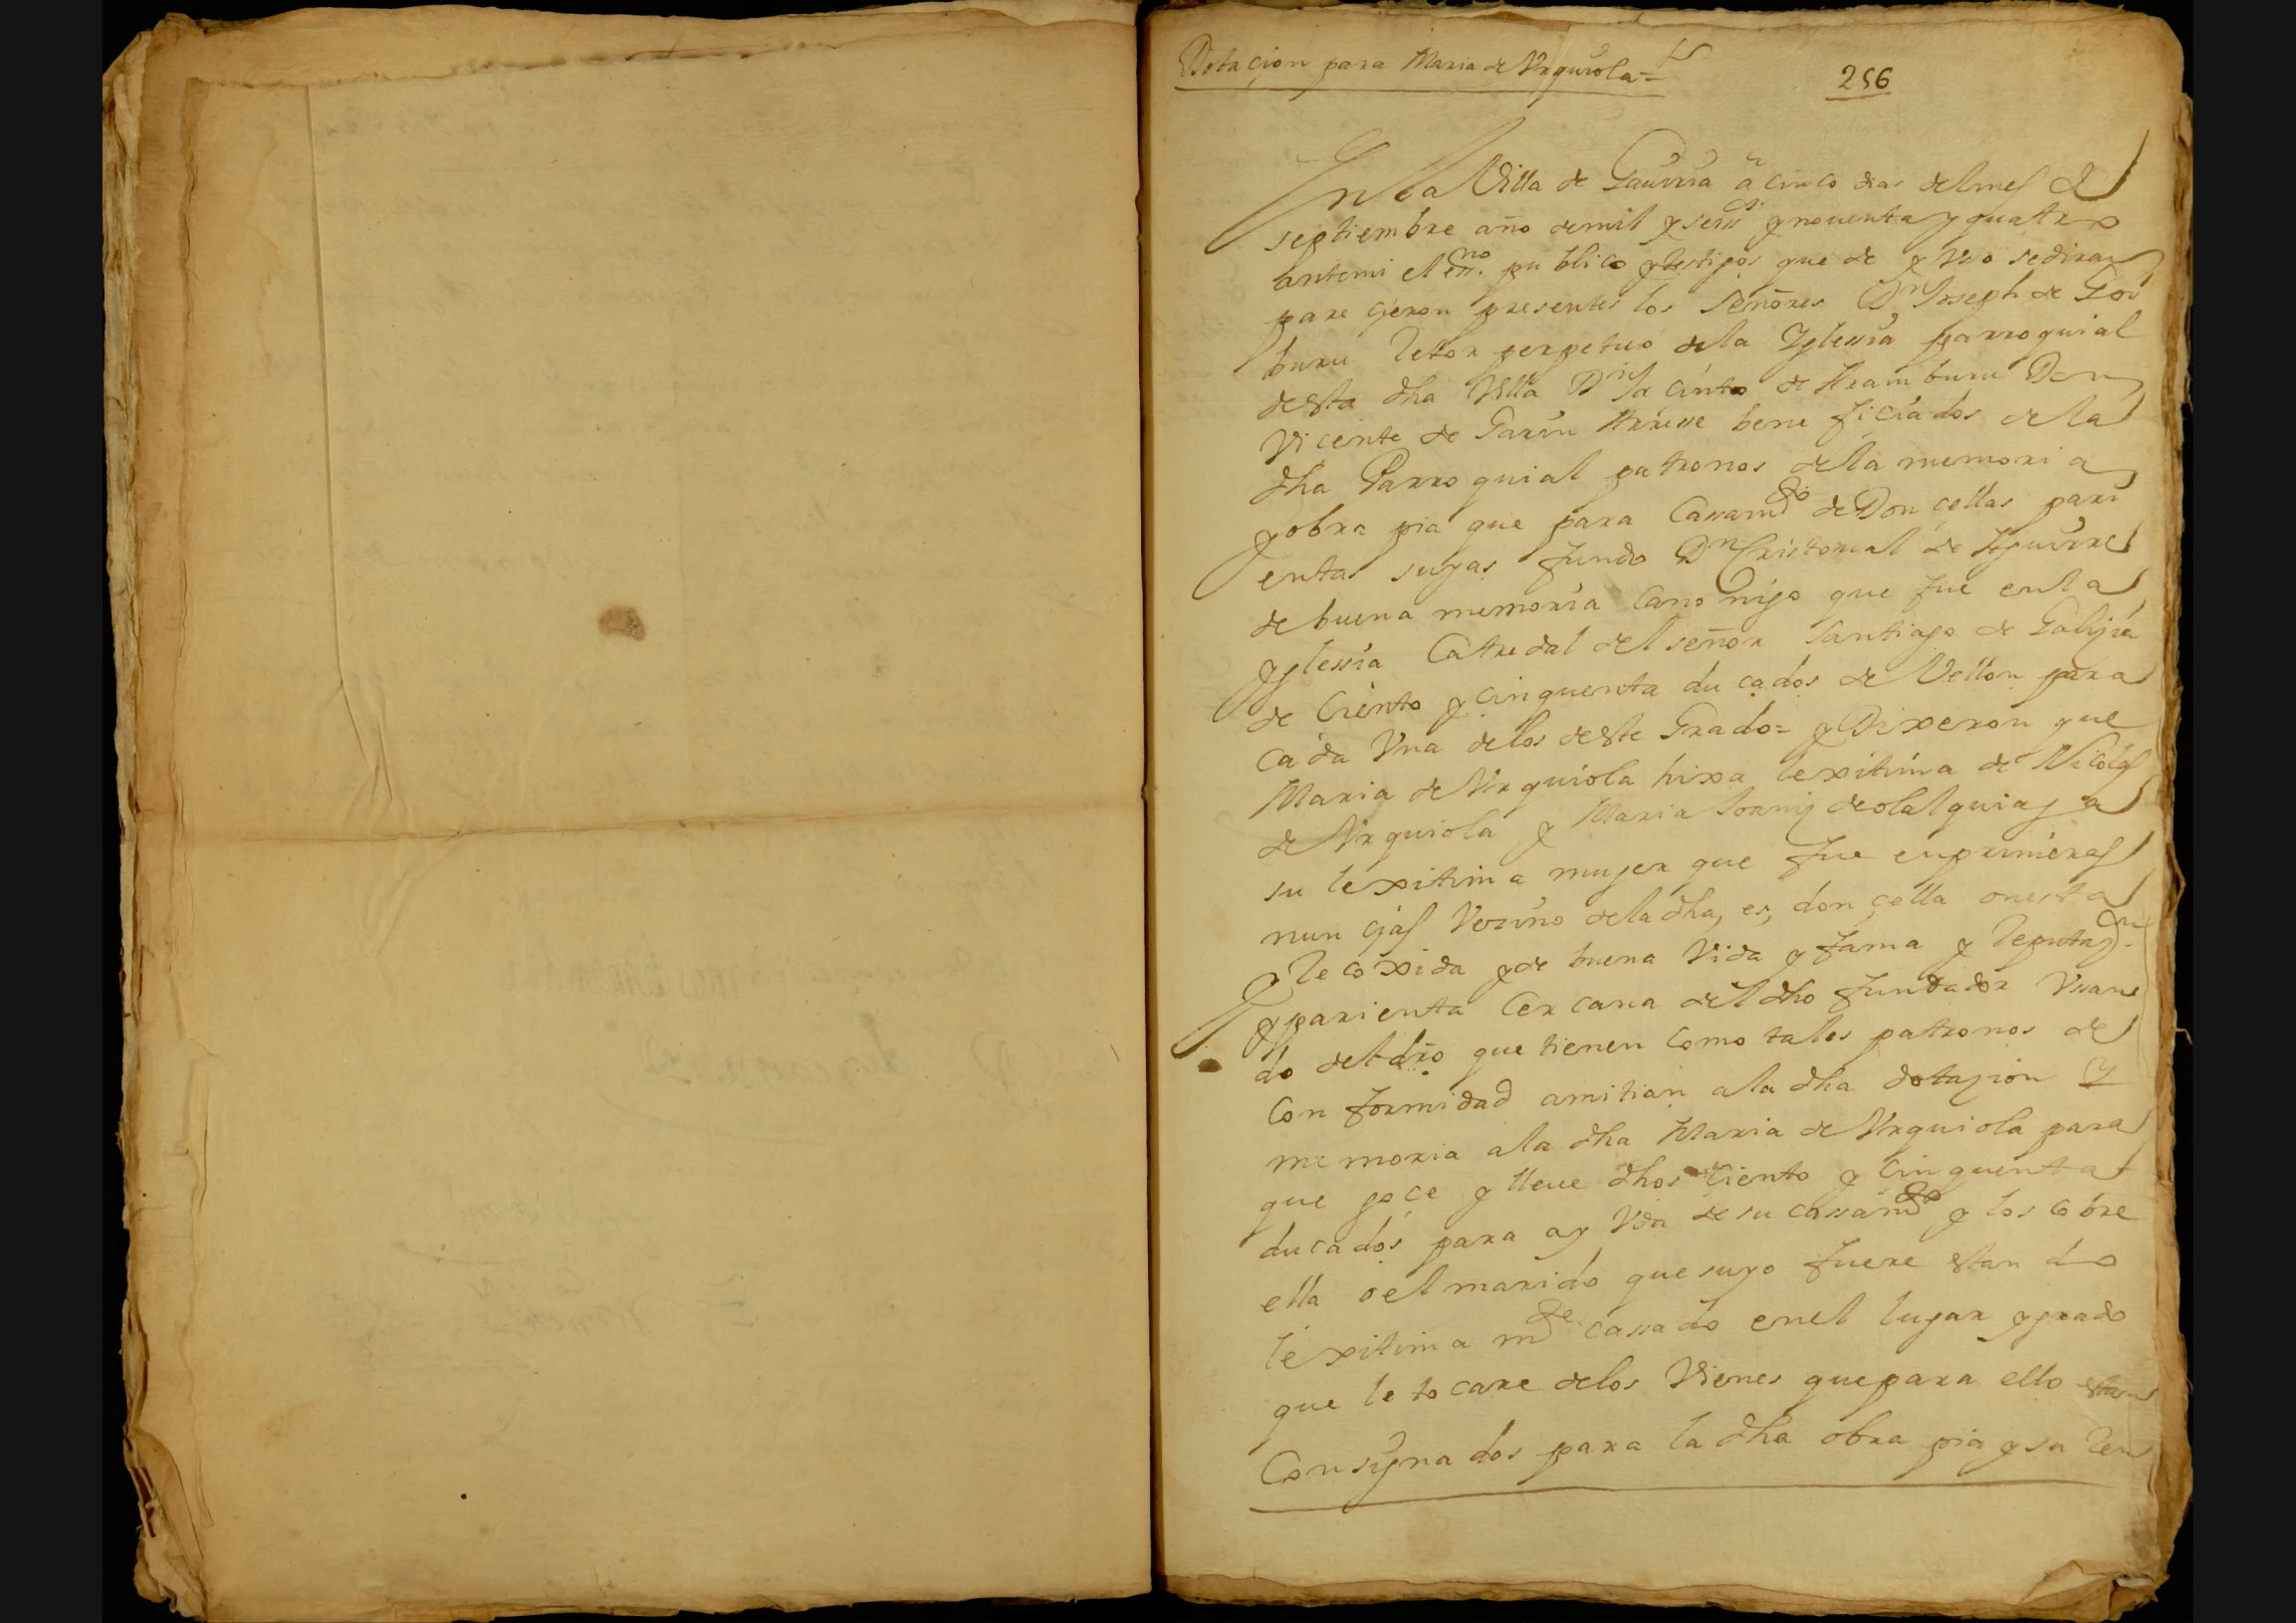 Dotaçion para Maria de Vrquiola =
256
En la Villa de Gauiria a cinco dias del mes de
septiembre año de mil y seisº y nouenta y quatro
ante mi el essno. publico y testigos que de yuso se diran
pareçieron presentes los señores Dn. Joseph de Goi
buru Retor perpetuo de la Yglessia parroquial
desta dha Villa Dn Jaçinto de Aramburu Don
Vicente de Garin Arrusse beneficiados de la
dha Parroquial patronos de la memoria
y obra pia que para Cassamto de Donçellas pari
entas suyas fundo Dn Cristoual de Eguurre
de buena memoria Canonigo que fue en la
yglessia Catredal del señor Santiago de Galiçia
de Ciento y cinquenta ducados de Vellon para
cada Vna de los deste Grado = y Dixeron que
Maria de Vrquiola hixa lexitima de Nicolas
de Vrquiola y Maria Lorenz de olalquiaga
su lexitima mujer que fue en primeras
nunçias Vezino de la dha, es, donçella onesta
y Recoxida y de buena Vida y fama y Reputaçon.
y parienta Cercana del dho fundador Vsan
do del dro que tienen como tales patronos de
Conformidad amitian a la dha dotazion y
memoria a la dha Maria de Vrquiola para
que goçe y lleue dhos Ciento y cinquenta
ducados para ayuda de su cassamto y los cobre
ella o el marido que suyo fuere estando
lexitimamte cassado en el lugar y grado
que le tocare de los Vienes que para ello estan
Consignados para la dha obra pia y su Ren